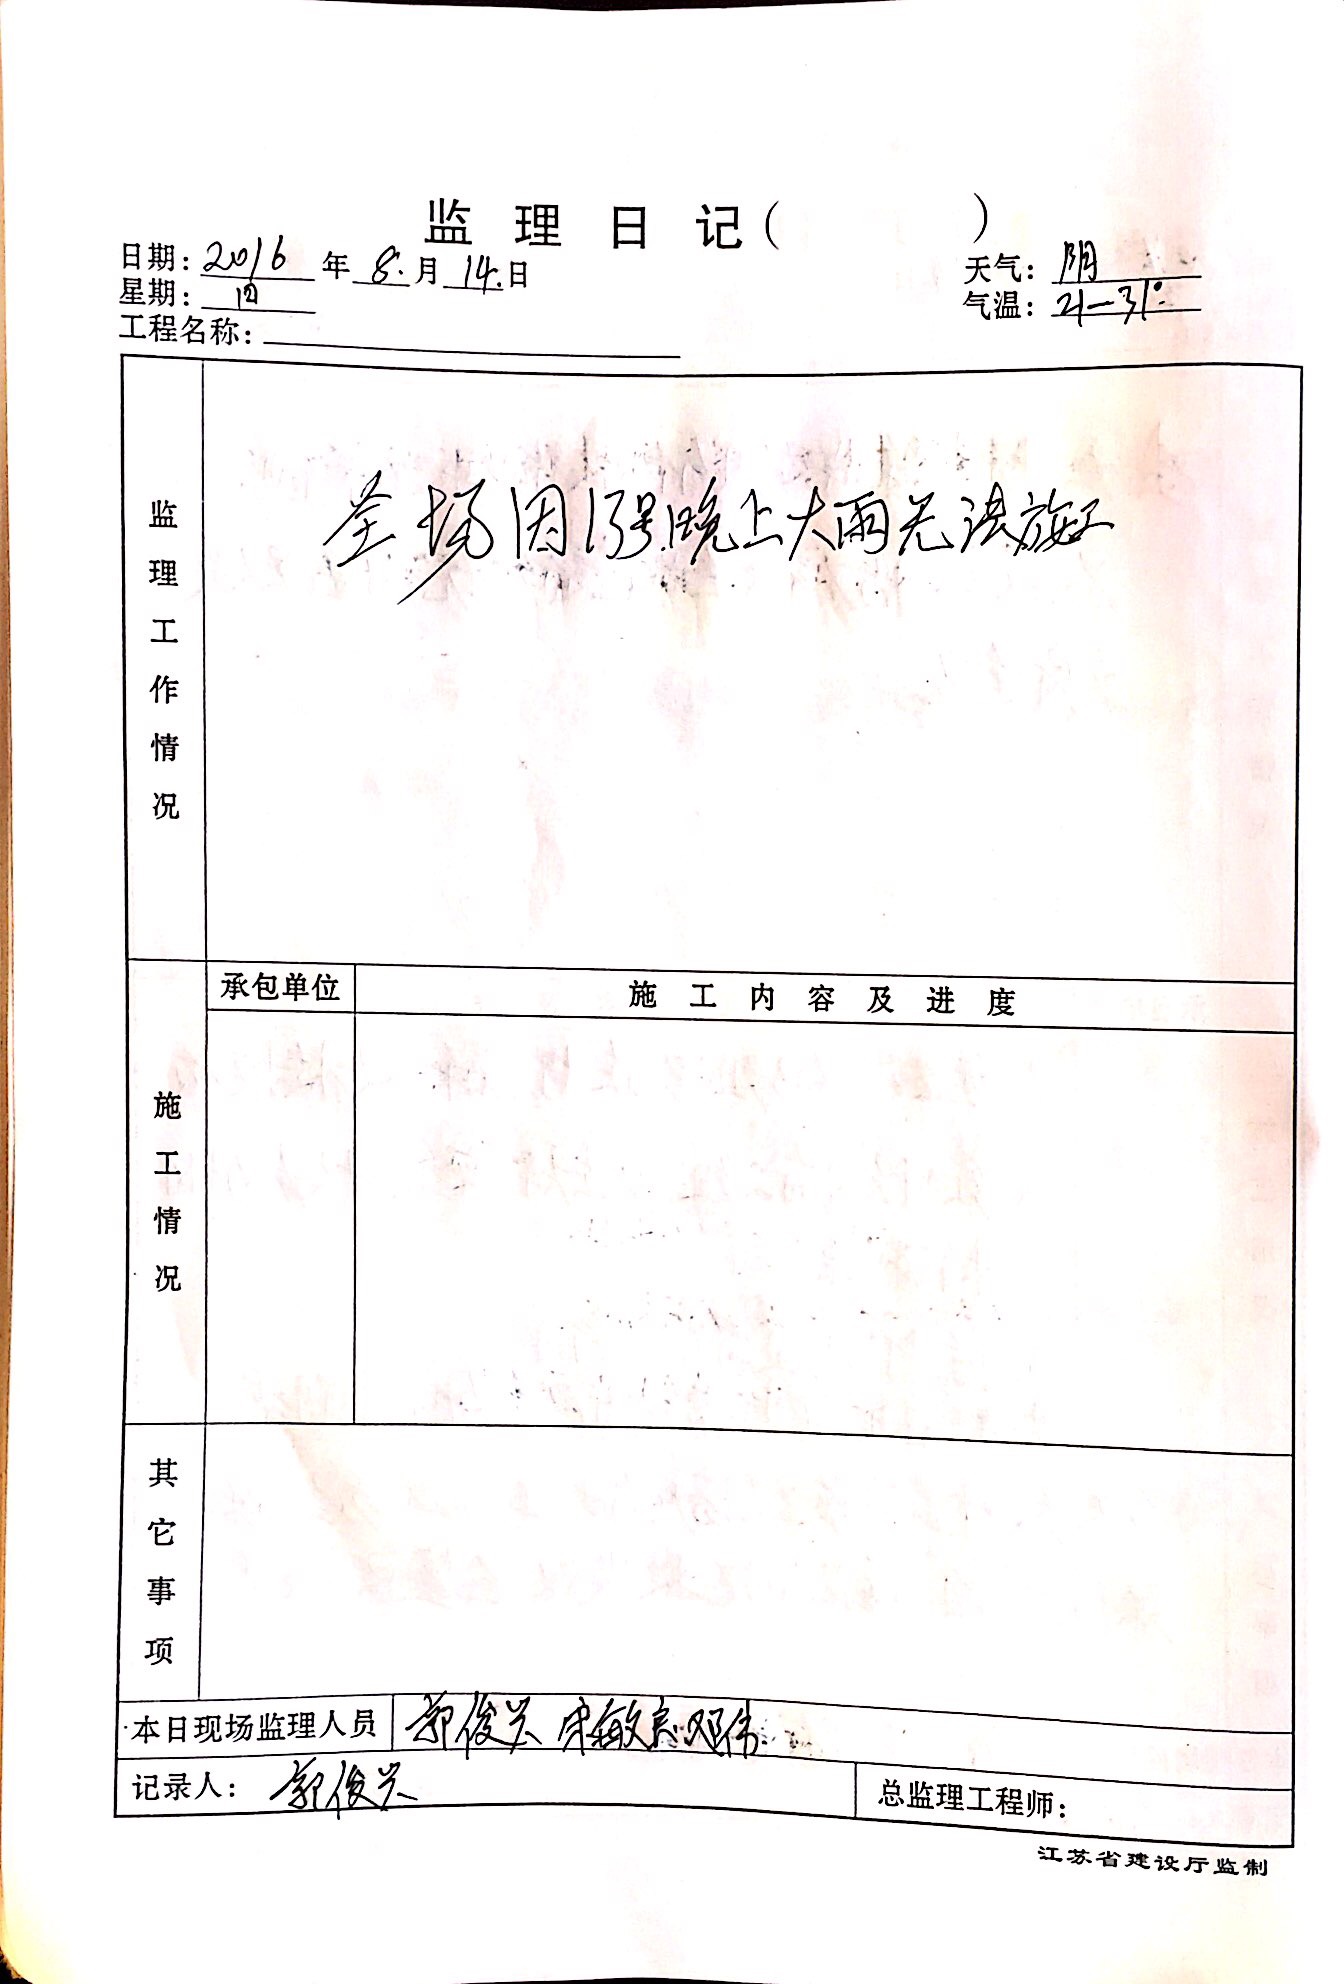 监理日记( )
日期:2016年8.月14.日
天气:阴
星期:日
气温:21-31°
工程名称:
监理工作情况
全场因13号晚上大雨无法施工
承包单位
施工内容及进度
施工情况
其它事项
本日现场监理人员 郭俊兴 邓伟
记录人:郭俊兴
总监理工程师:
江苏省建设厅监制